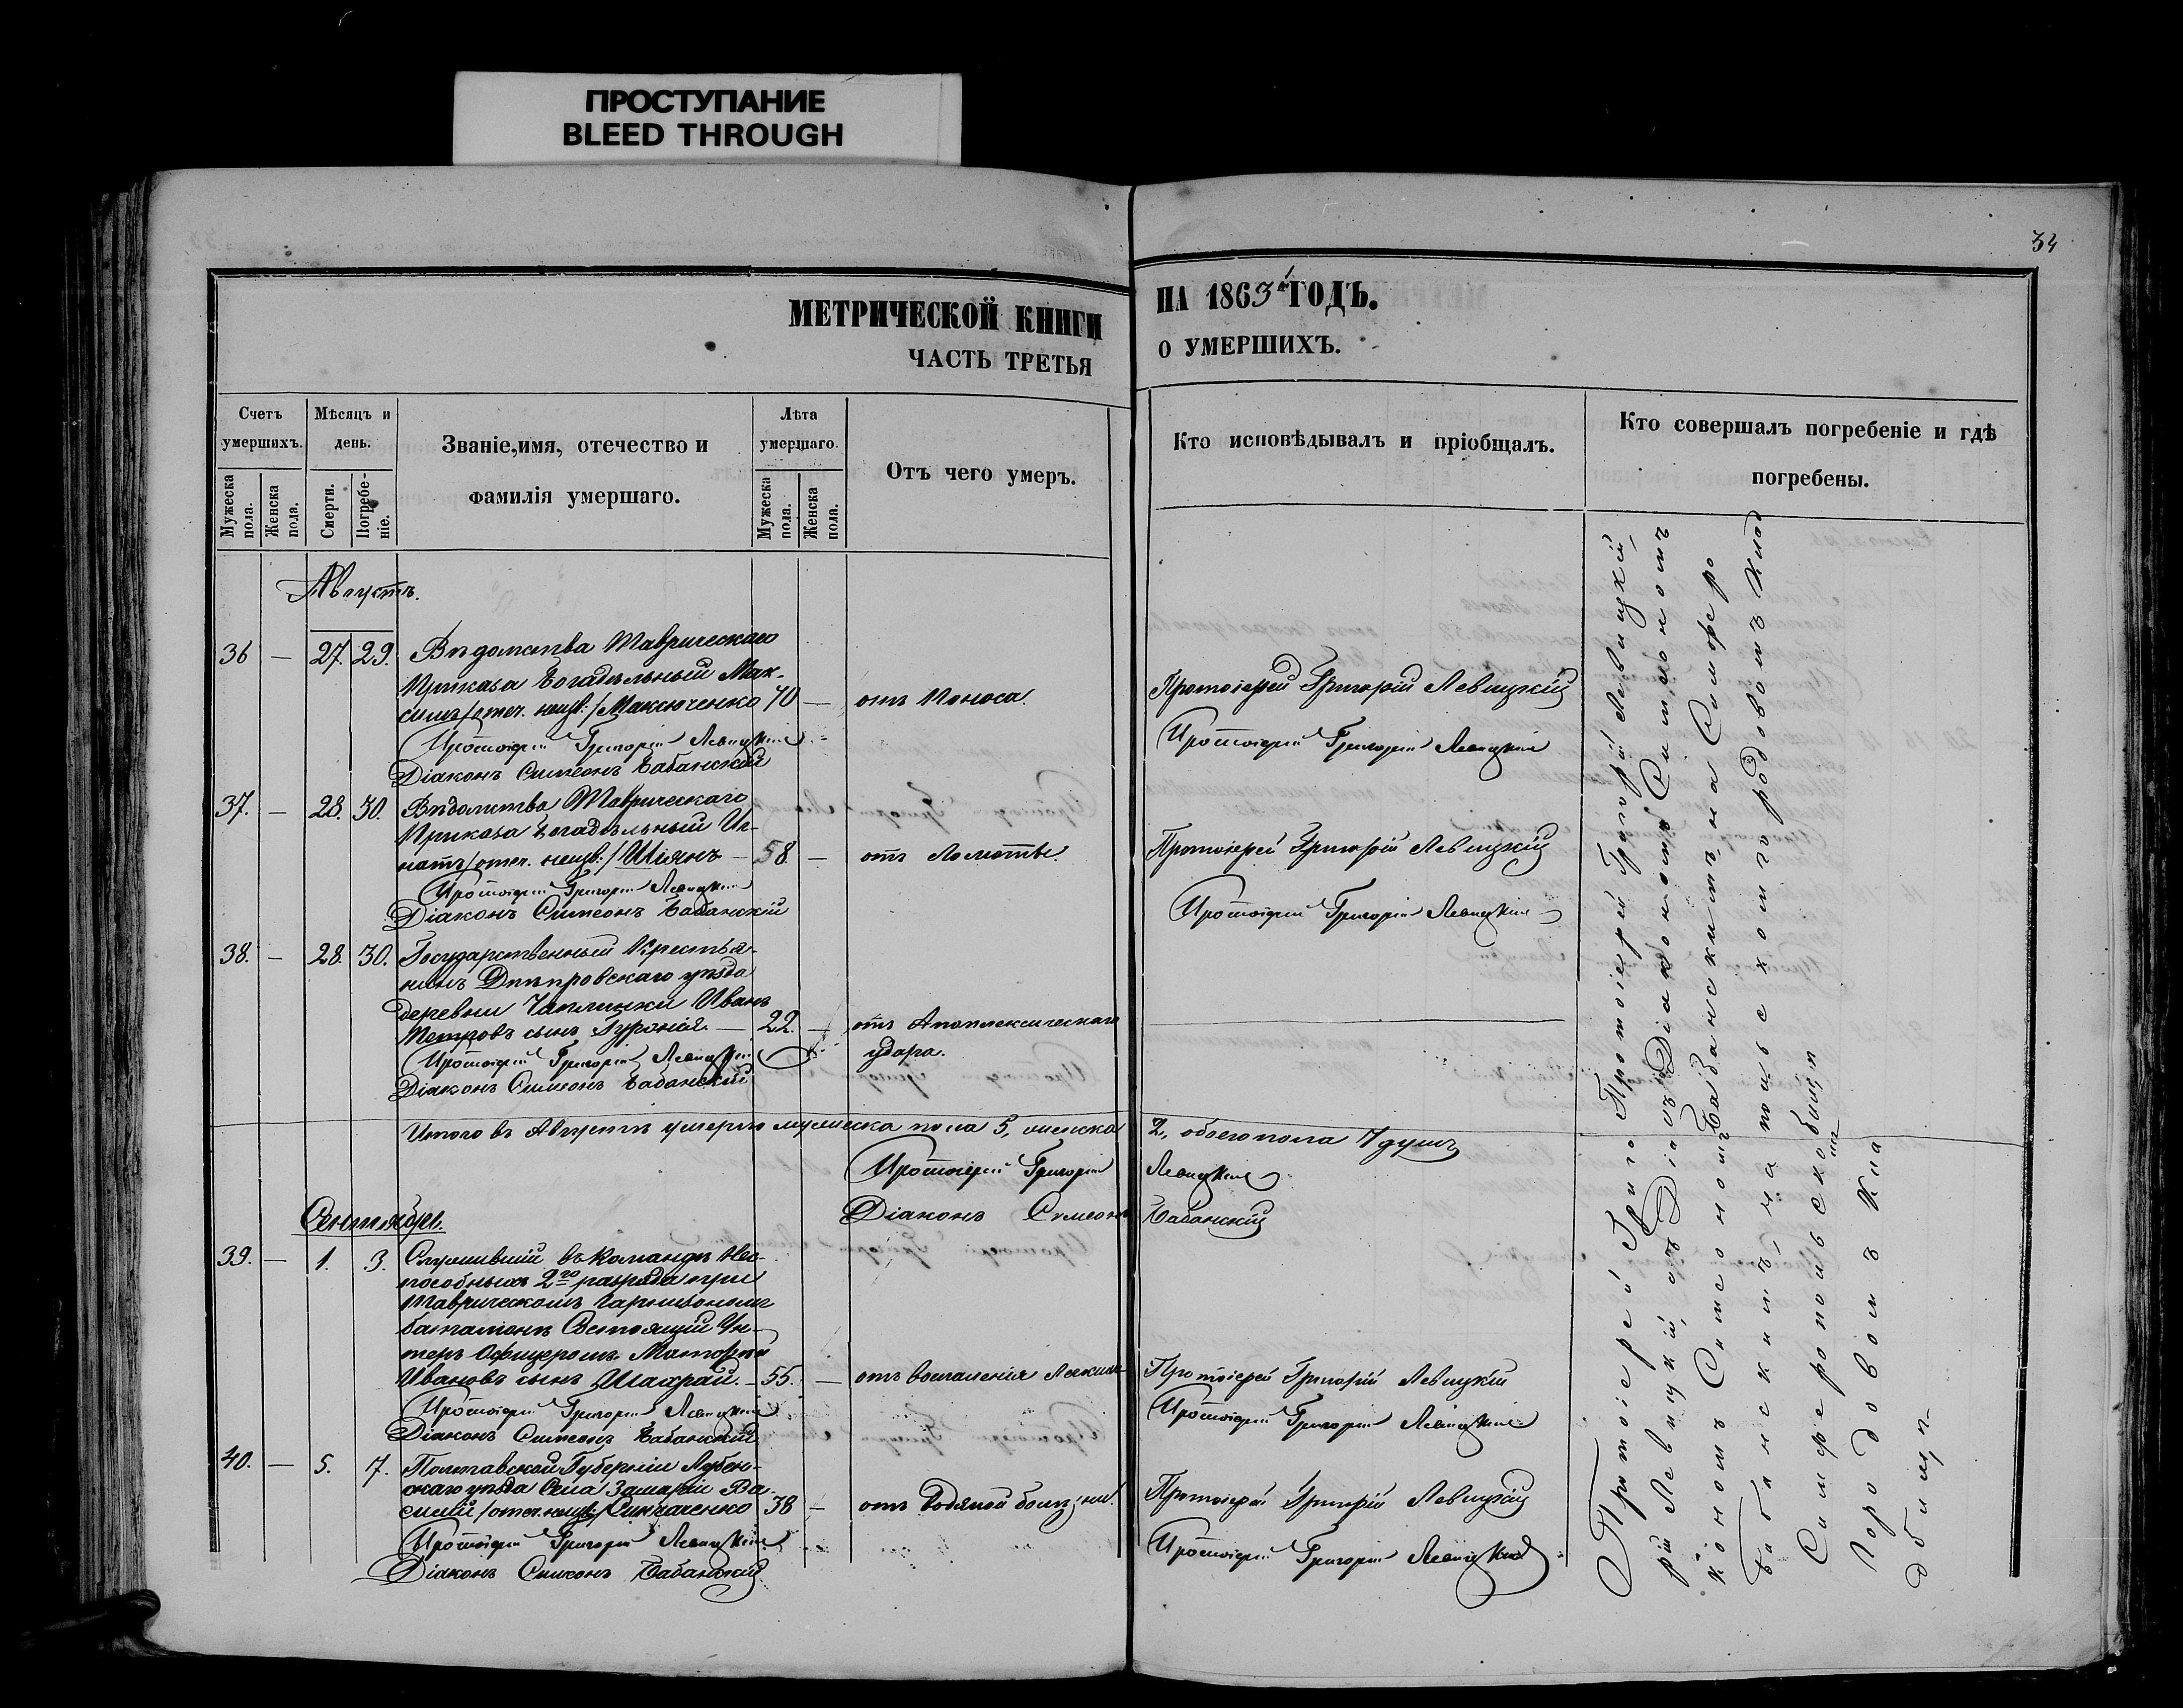 ПРОСТУПАНИЕ
BLEED THROUGH
34
МЕТРИЧЕСКОЙ КНИГИ НА 1863й ГОДЪ.
ЧАСТЬ ТРЕТЬЯ О УМЕРШИХЪ.
Счетъ умершихъ.
Мужеска пола.
Женска пола.
Мѣсяцъ и день.
Смерти.
Погребе-ніе.
Званіе, имя, отечество и
фамилія умершаго.
Лѣта умершаго.
Мужеска пола.
Женска пола.
Отъ чего умеръ.
Кто исповѣдывалъ и пріобщалъ.
Кто совершалъ погребеніе и гдѣ
погребены.
Августъ.
36 — 27. 29. Вѣдомства Таврическаго
Приказа Богадѣльный Мак-
симъ /отеч. неизв:/ Максюченко 70 — отъ Поноса. Протоіерей Григорій Левицкій
Протоіерей Григорій Левицкій Протоіерей Григорій Левицкій
Діаконъ Симеонъ Бабанскій
37. — 28. 30. Вѣдомства Таврическаго
Приказа Богадѣльный Иг-
натъ /отеч. неизв:/ Шіянъ — 58. — отъ Ломоты. Протоіерей Григорій Левицкій
Протоіерей Григорій Левицкій Протоіерей Григорій Левицкій
Діаконъ Симеонъ Бабанскій
38. — 28. 30. Государственный Крестья-
нинъ Днѣпровскаго уѣзда
деревни Чаплинки Иванъ
Петровъ сынъ — 22. — отъ Апоплексическаго
удара.
Протоіерей Григорій Левицкій
Діаконъ Симеонъ Бабанскій
Итого въ Августѣ умерло мужеска пола 5, женска 2, обоего пола 7 душъ
Протоіерей Григорій Левицкій
Діаконъ Симеонъ Бабанскій
Сентябрь.
39. — 1. 3. Служившій въ Командѣ Нес-
пособныхъ 2го разряда при
Таврическомъ Гарнизономъ
баталіонѣ Состоящій Ун-
теръ Офицеромъ
Ивановъ сынъ Шахрай. — 55. — отъ воспаленія Протоіерей Григорій Левицкій
Протоіерей Григорій Левицкій Протоіерей Григорій Левицкій
Діаконъ Симеонъ Бабанскій
40. — 5. 7. Полтавской Губерніи Лубен-
скаго уѣзда Села Ва-
силій /отеч. неизв:/ 38 — отъ Водяной болѣзни. Протоіерей Григорій Левицкій
Протоіерей Григорій Левицкій Протоіерей Григорій Левицкій
Діаконъ Симеонъ Бабанскій
Протоіерей Григорій Левицкій
съ Діакономъ Симеономъ
Бабанскимъ на Симферо
польскомъ городовомъ Клад
бищѣ
Протоіерей Григо
рій Левицкій съ Діа
кономъ Симеономъ
Бабанскимъ на
Симферопольском
Городовомъ Кла
дбищѣ